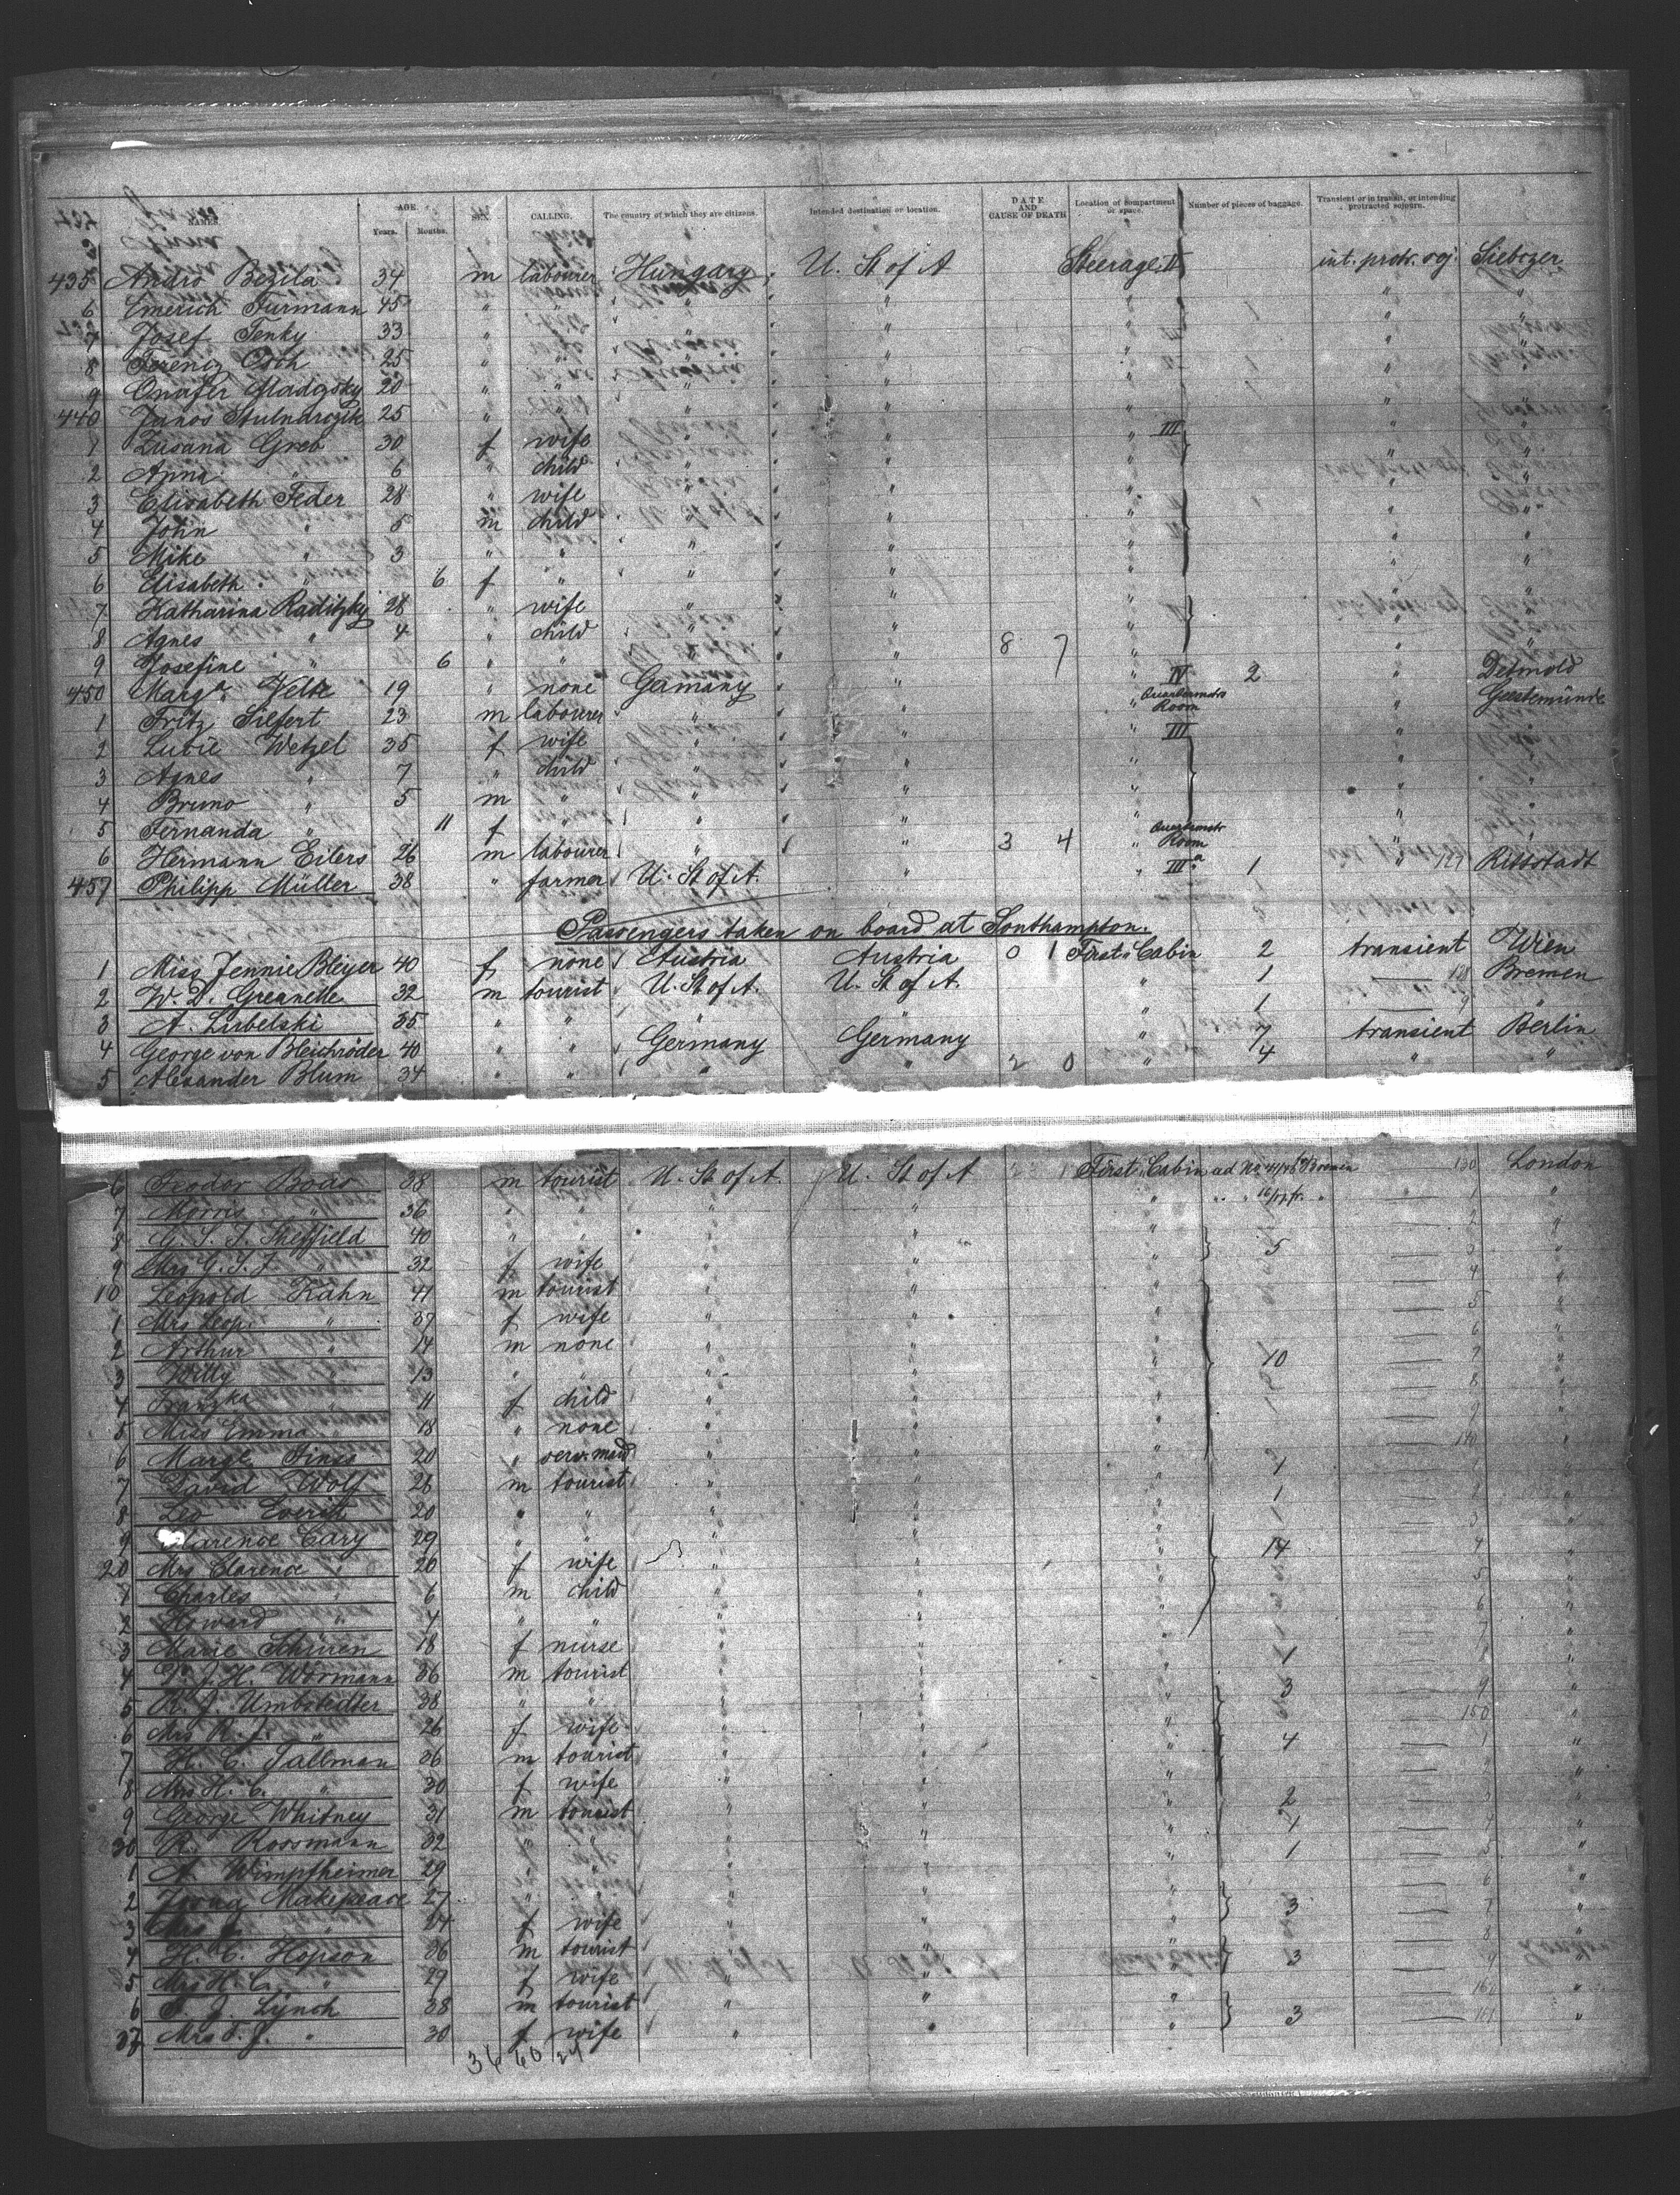 NAMES. AGE. Years. Months. SEX. CALLING. The country of which they are citizens. Intended destination or location. DATE AND CAUSE OF DEATH Location of compartment or space. Number of pieces of baggage. Transient or in transit, or intending protracted sojourn.
435 Andro Bezila 34 m labourer Hungary U. St of A Steerage II int. protr. soj. Siebczer
6 Emerich Furmann 45 " " " " " " "
7 Josef Tenky 33 " " " " " " "
8 Ferencz Osth 25 " " " " " " "
9 Onufer Gladczsky 20 " " " " " " "
440 Janos Stulnarczik 25 " " " " " " "
1 Zusana Greb 30 f wife " " " III " "
2 Anna " 6 " child " " " " "
3 Elisabeth Feder 28 " wife " " " " "
4 John " 5 m child " " " " "
5 Mike " 3 " " " " " " "
6 Elisabeth " 6 f " " " " " "
7 Katharina Raditzky 28 " wife " " " " "
8 Agnes " 4 " child " " 8 7 " " "
9 Josefine " 6 " " " " " " "
450 Marga Velte 19 " none Germany " " IV 2 " Detmold
1 Fritz Siefert 23 m labourer " " " Quartermstrs Room " Geestemünde
2 Lucie Wetzel 35 f wife " " " III " "
3 Agnes " 7 " child " " " " "
4 Bruno " 5 m " " " " " "
5 Fernanda " 11 f " " " " " "
6 Hermann Eilers 26 m labourer " " 3 4 " Quartermstr Room " "
457 Philipp Müller 38 " farmer U. St of A. " " IIIa 1 " 127 Rittstadt
Passengers taken on board at Southampton.
1 Miss Jennie Bleyer 40 f none Austria Austria 0 1 First Cabin 2 transient Wien
2 W. D. Greanelle 32 m tourist U. St of A. U. St of A. " 1 — 128 Bremen
3 A. Lubelski 35 " " " 1 — 9 "
4 George von Bleichröder 40 " " Germany Germany " 7 transient Berlin
5 Alexander Blum 34 " " " " 2 0 " 4 " "
6 Feodor Boas 38 m tourist U. St of A. U. St of A First Cabin 130 London
7 Morris " 36 " " " " " 1 "
8 G. S. J. Sheffield 40 " " " " " 5 — 2 "
9 Mrs G. S. J. " 32 f wife " " " — 3 "
10 Leopold Kahn 41 m tourist " " " — 4 "
1 Mrs Leop. " 37 f wife " " " — 5 "
2 Arthur " 14 m none " " " — 6 "
3 Willy " 13 " " " " " 10 — 7 "
4 Franzka " 11 f child " " " — 8 "
5 Miss Emma " 18 " none " " " — 9 "
6 Margt. 20 " serv. maid " " " — 140 "
7 David Wolf 26 m tourist " " " 1 — 1 "
8 Leo Everitt 20 " " " " " 1 — 2 "
9 Clarence Cary 29 " " " " " — 3 "
20 Mrs Clarence " 20 f wife " " " 14 — 4 "
1 Charles " 6 m child " " " — 5 "
2 Howard " 4 " " " " " — 6 "
3 Marie Schüren 18 f nurse " " " — 7 "
4 Dr. J. H. Wörmann 36 m tourist " " " 1 — 8 "
5 R. J. Umbstedter 38 " " " " " 3 — 9 "
6 Mrs R. J. " 26 f wife " " " — 150 "
7 H. C. Tallman 36 m tourist " " " 4 — 1 "
8 Mrs H. C. " 30 f wife " " " — "
9 George Whitney 31 m tourist " " " 2 — 3 "
30 R. Rossmann 32 " " " " " 1 — 4 "
1 A. Wimpfheimer 29 " " " " " 1 — 5 "
2 Makepeace 27 " " " " " 3 — 6 "
3 Mrs " 24 f wife " " " — 7 "
4 H. C. Hopson 36 m tourist " " " 3 — 8 "
5 Mrs H. C. " 29 f wife " " " — 9 "
6 T. J. Lynch 38 m tourist " " " 3 — 160 "
37 Mrs T. J. " 30 f wife " " " — 161 "
36 60 24